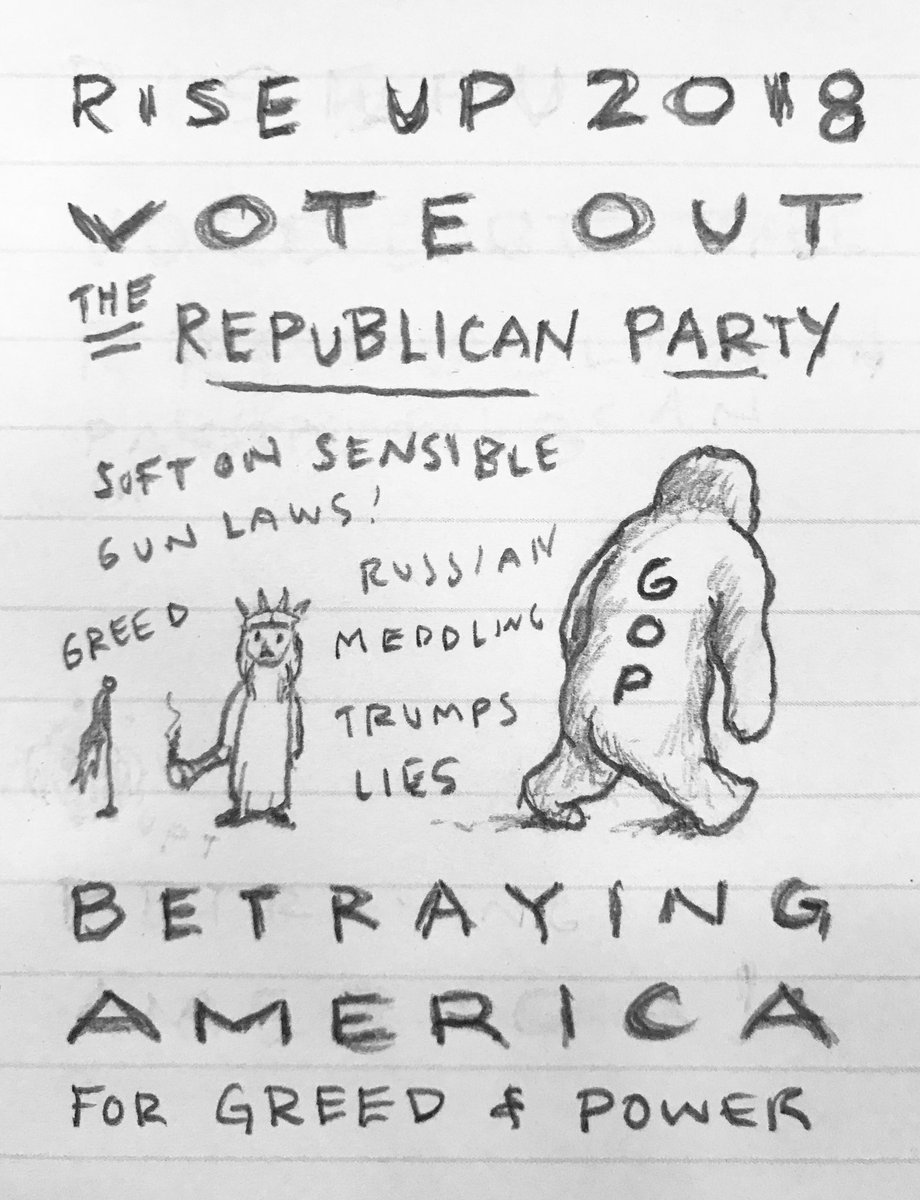 RISE UP 2018
VOTE OUT
THE REPUBLICAN PARTY
SOFT ON SENSIBLE
GUN LAWS!
GREED
RUSSIAN
MEDDLING
TRUMPS
LIES
G
O
P
BETRAYING
AMERICA
FOR GREED & POWER